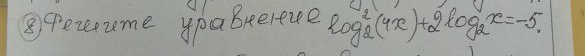 ⑧ Решите уравнение log₂²(4x)+2log₂x=-5.